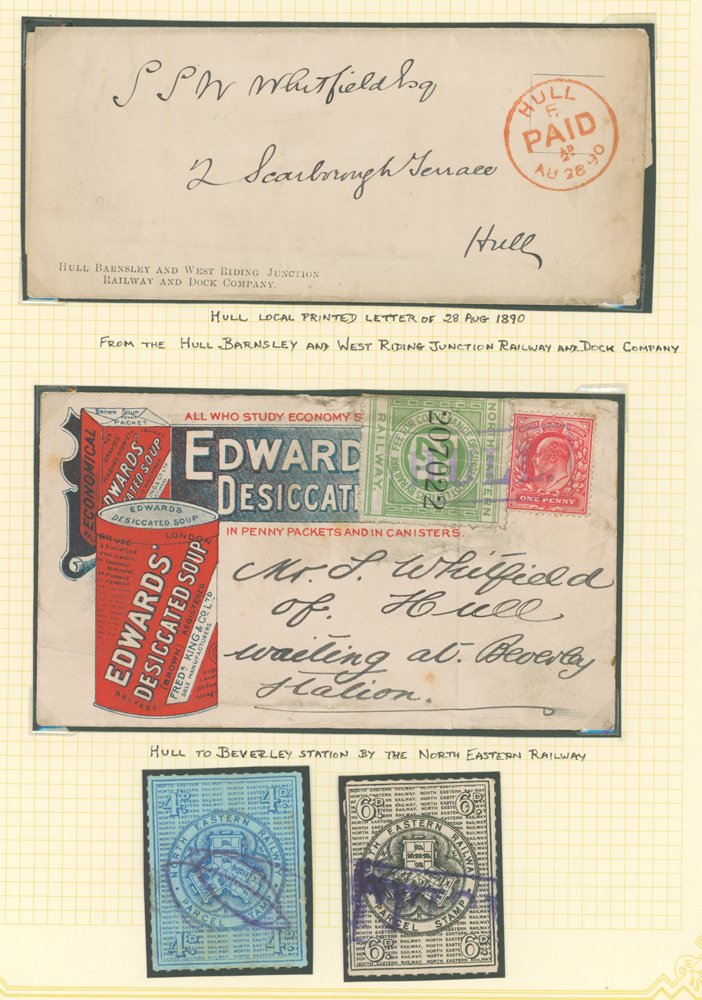 S S W Whitfield Esq
2 Scarborough Terrace
Hull
HULL
E
PAID
½D
AU 28 90
HULL BARNSLEY AND WEST RIDING JUNCTION
RAILWAY AND DOCK COMPANY.
HULL LOCAL PRINTED LETTER OF 28 AUG 1890
FROM THE HULL BARNSLEY AND WEST RIDING JUNCTION RAILWAY AND DOCK COMPANY
BROWN SOUP
PENNY
PACKET
ECONOMICAL
EDWARDS'
DESICCATED SOUP
ALL WHO STUDY ECONOMY S
EDWARD
DESICCATI
IN PENNY PACKETS AND IN CANISTERS.
NORTH EASTERN
RAILWAY
207022
HULL
ONE PENNY
EDWARDS
DESICCATED SOUP
LONDON
EDWARDS'
DESICCATED SOUP
(BROWN) REGISTERED
FREDK KING & CO LTD
SOLE MANUFACTURERS
BELFAST
Mr. S. Whitfield
of Hull
waiting at Beverley
Station.
HULL TO BEVERLEY STATION BY THE NORTH EASTERN RAILWAY
4D. 4D.
NORTH EASTERN RAILWAY
PARCEL STAMP
4D. 4D.
6D. 6D.
NORTH EASTERN RAILWAY
PARCEL STAMP
6D. 6D.